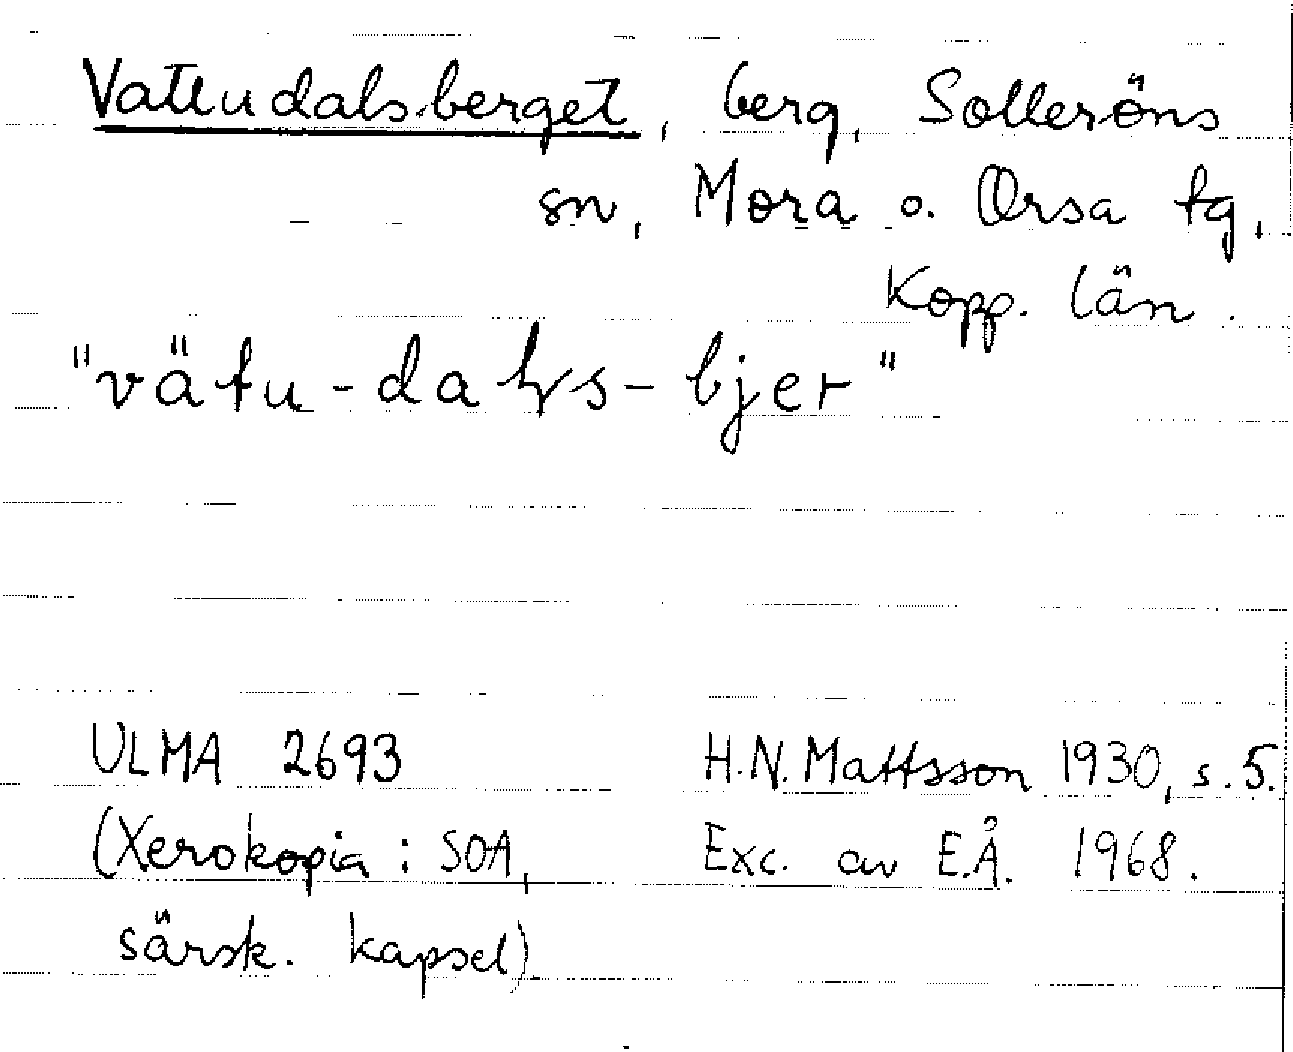 Vattudalsberget, berg, Solleröns
sn, Mora o. Orsa tg,
Kopp. län.
"vätu-dalys-bjer"
ULMA 2693 H.N. Mattsson 1930, s. 5.
(Xerokopia i SOA, Exc. av E.Å. 1968.
särsk. kapsel)